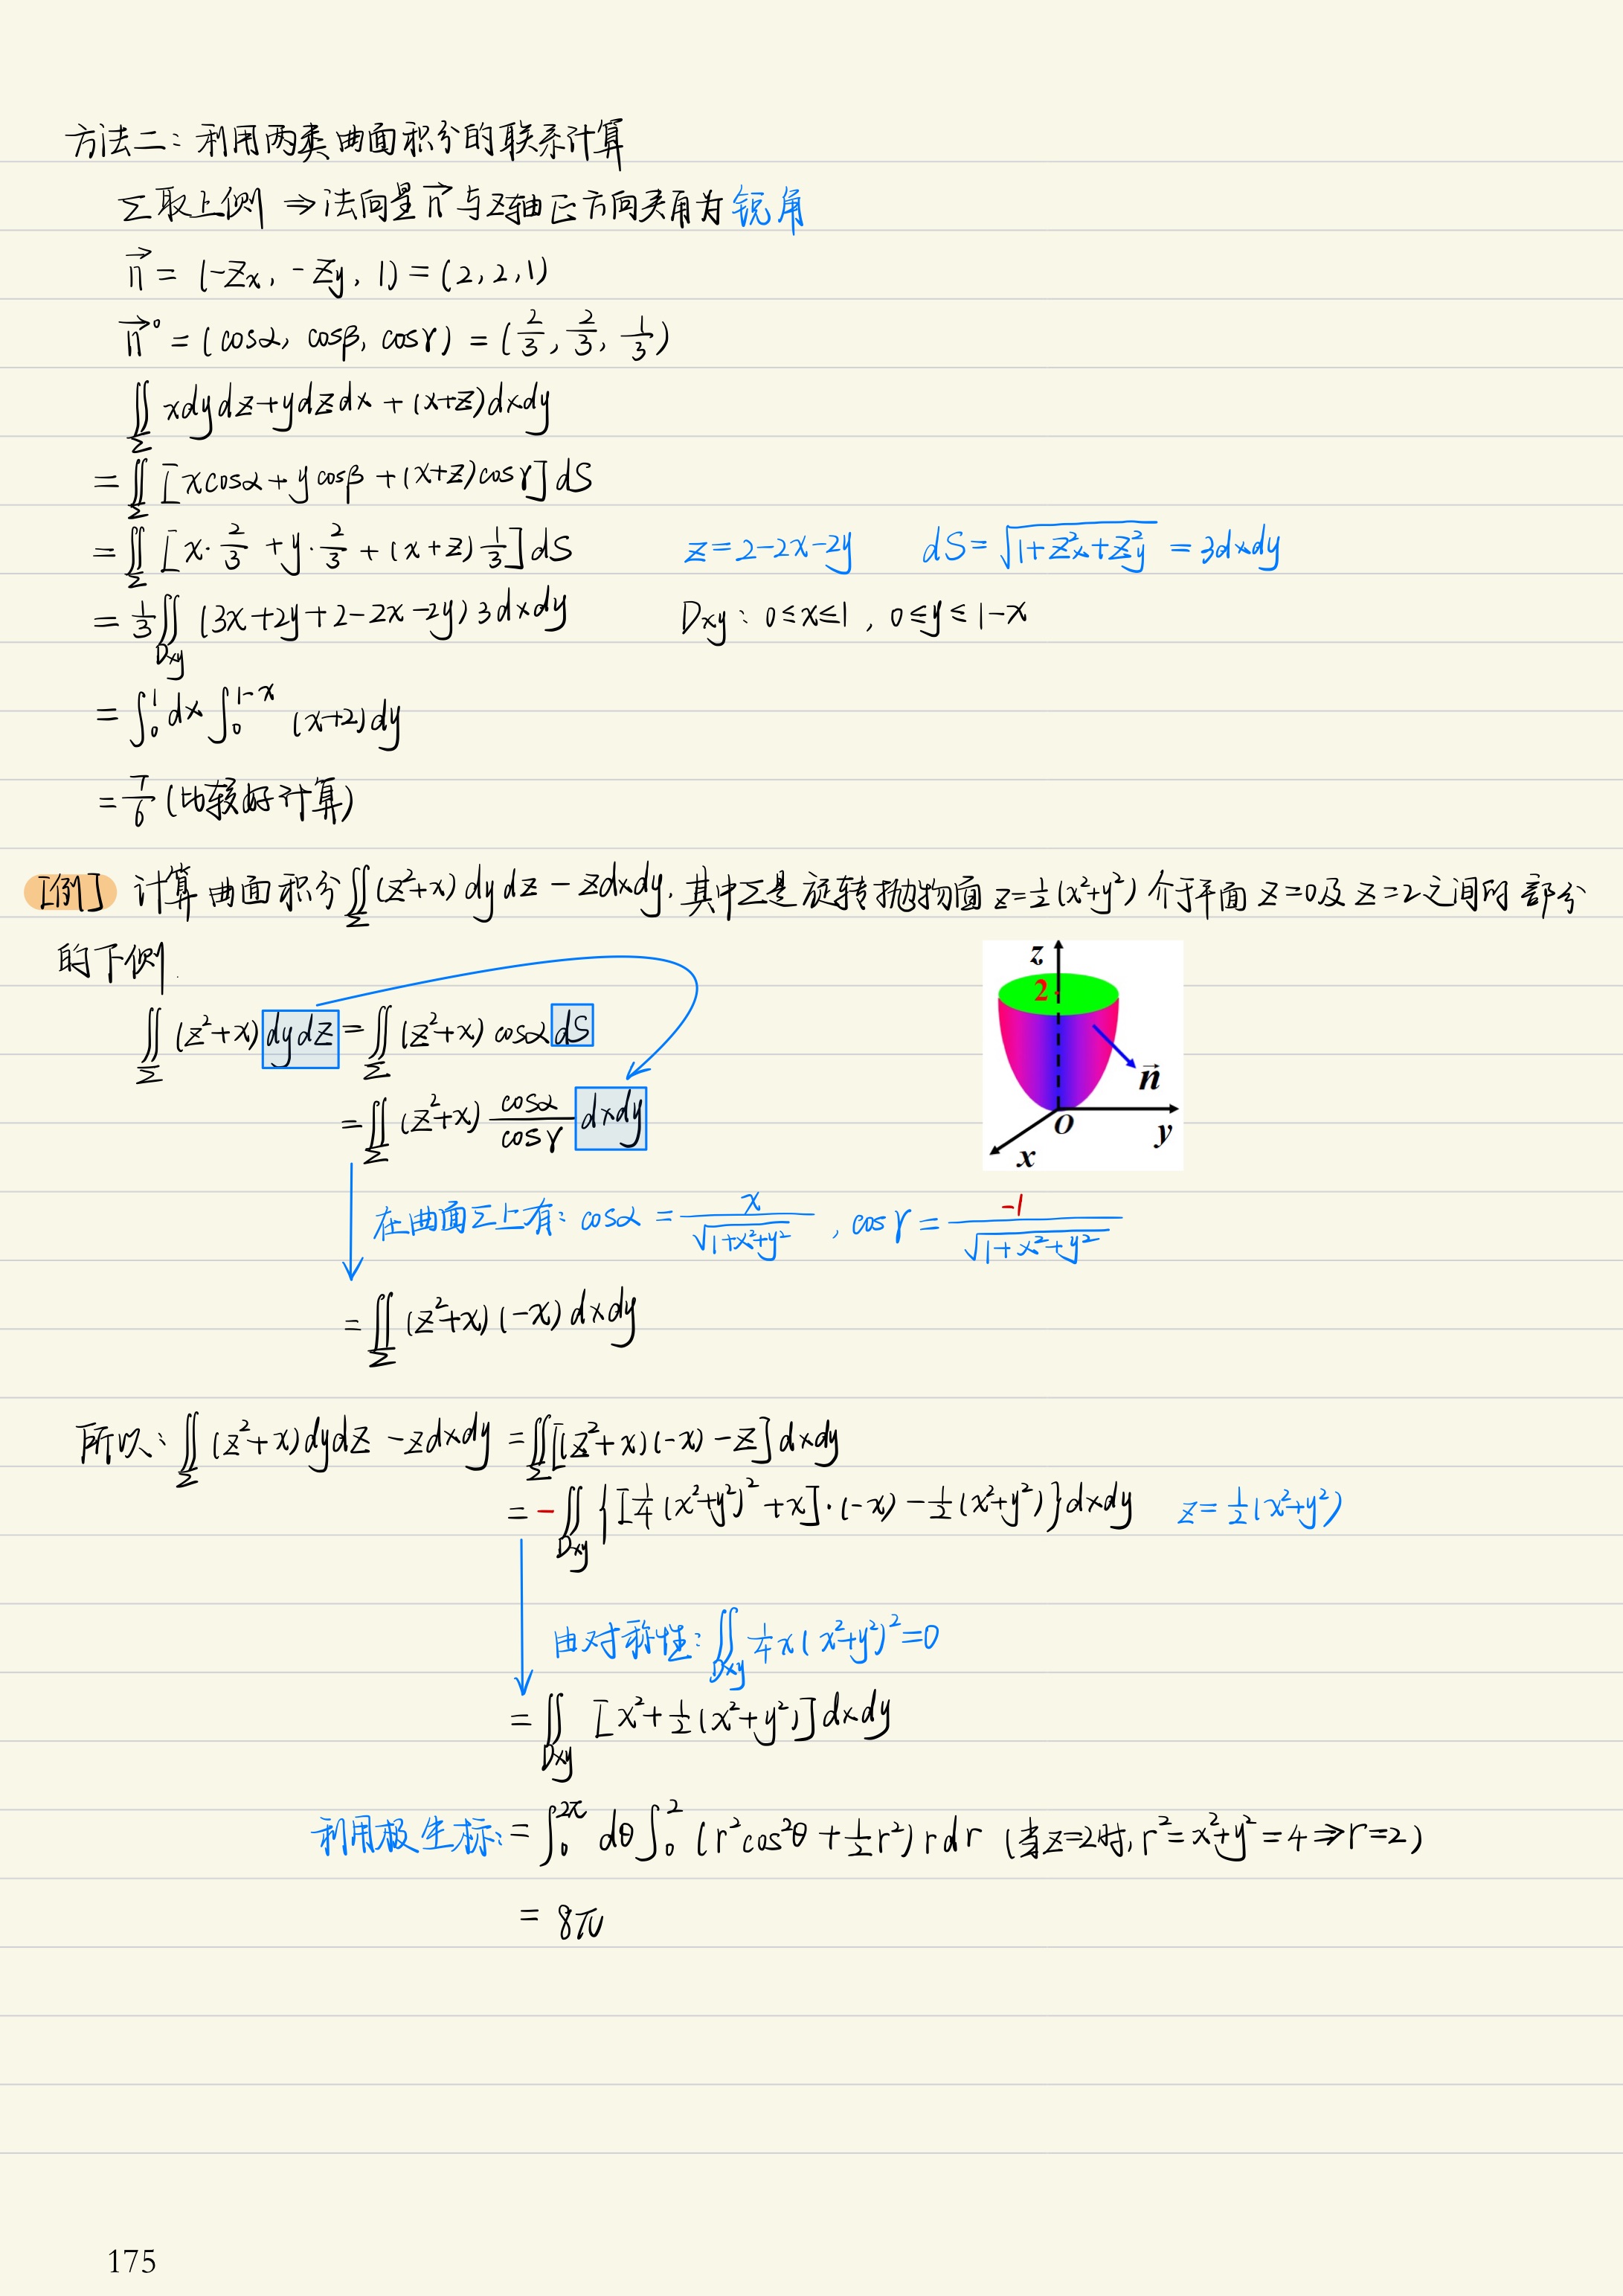 方法二：利用两类曲面积分的联系计算
Σ取上侧 ⇒ 法向量 n⃗ 与z轴正方向夹角为锐角
n⃗ = (-Zx, -Zy, 1) = (2, 2, 1)
n⃗° = (cosα, cosβ, cosγ) = (2/3, 2/3, 1/3)
∬_Σ xdydz+ydzdx+(x+z)dxdy
= ∬_Σ [xcosα+ycosβ+(x+z)cosγ]dS
= ∬_Σ [x·2/3+y·2/3+(x+z)1/3]dS z=2-2x-2y dS=√(1+Z²x+Z²y) = 3dxdy
= 1/3∬_Dxy (3x+2y+2-2x-2y)3dxdy Dxy: 0≤x≤1, 0≤y≤1-x
= ∫₀¹dx∫₀^(1-x) (x+2)dy
= 7/6 (比较好计算)
[例] 计算曲面积分∬_Σ(z²+x)dydz-zdxdy, 其中Σ是旋转抛物面z=1/2(x²+y²)介于平面z=0及z=2之间的部分
的下侧.
∬_Σ (z²+x)dydz = ∬_Σ (z²+x)cosαdS
= ∬_Σ (z²+x) cosα/cosγ dxdy
z
2
n⃗
O
y
x
在曲面Σ上有: cosα = x/√(1+x²+y²), cosγ = -1/√(1+x²+y²)
= ∬_Σ (z²+x)(-x)dxdy
所以: ∬_Σ (z²+x)dydz-zdxdy = ∬_Σ[(z²+x)(-x)-z]dxdy
= -∬_Dxy {[1/4(x²+y²)²+x]·(-x)-1/2(x²+y²)}dxdy z=1/2(x²+y²)
由对称性: ∬_Dxy 1/4x(x²+y²)²=0
= ∬_Dxy [x²+1/2(x²+y²)]dxdy
利用极坐标: = ∫₀^2π dθ∫₀² (r²cos²θ+1/2r²)rdr (当z=2时, r²=x²+y²=4⇒r=2)
= 8π
175